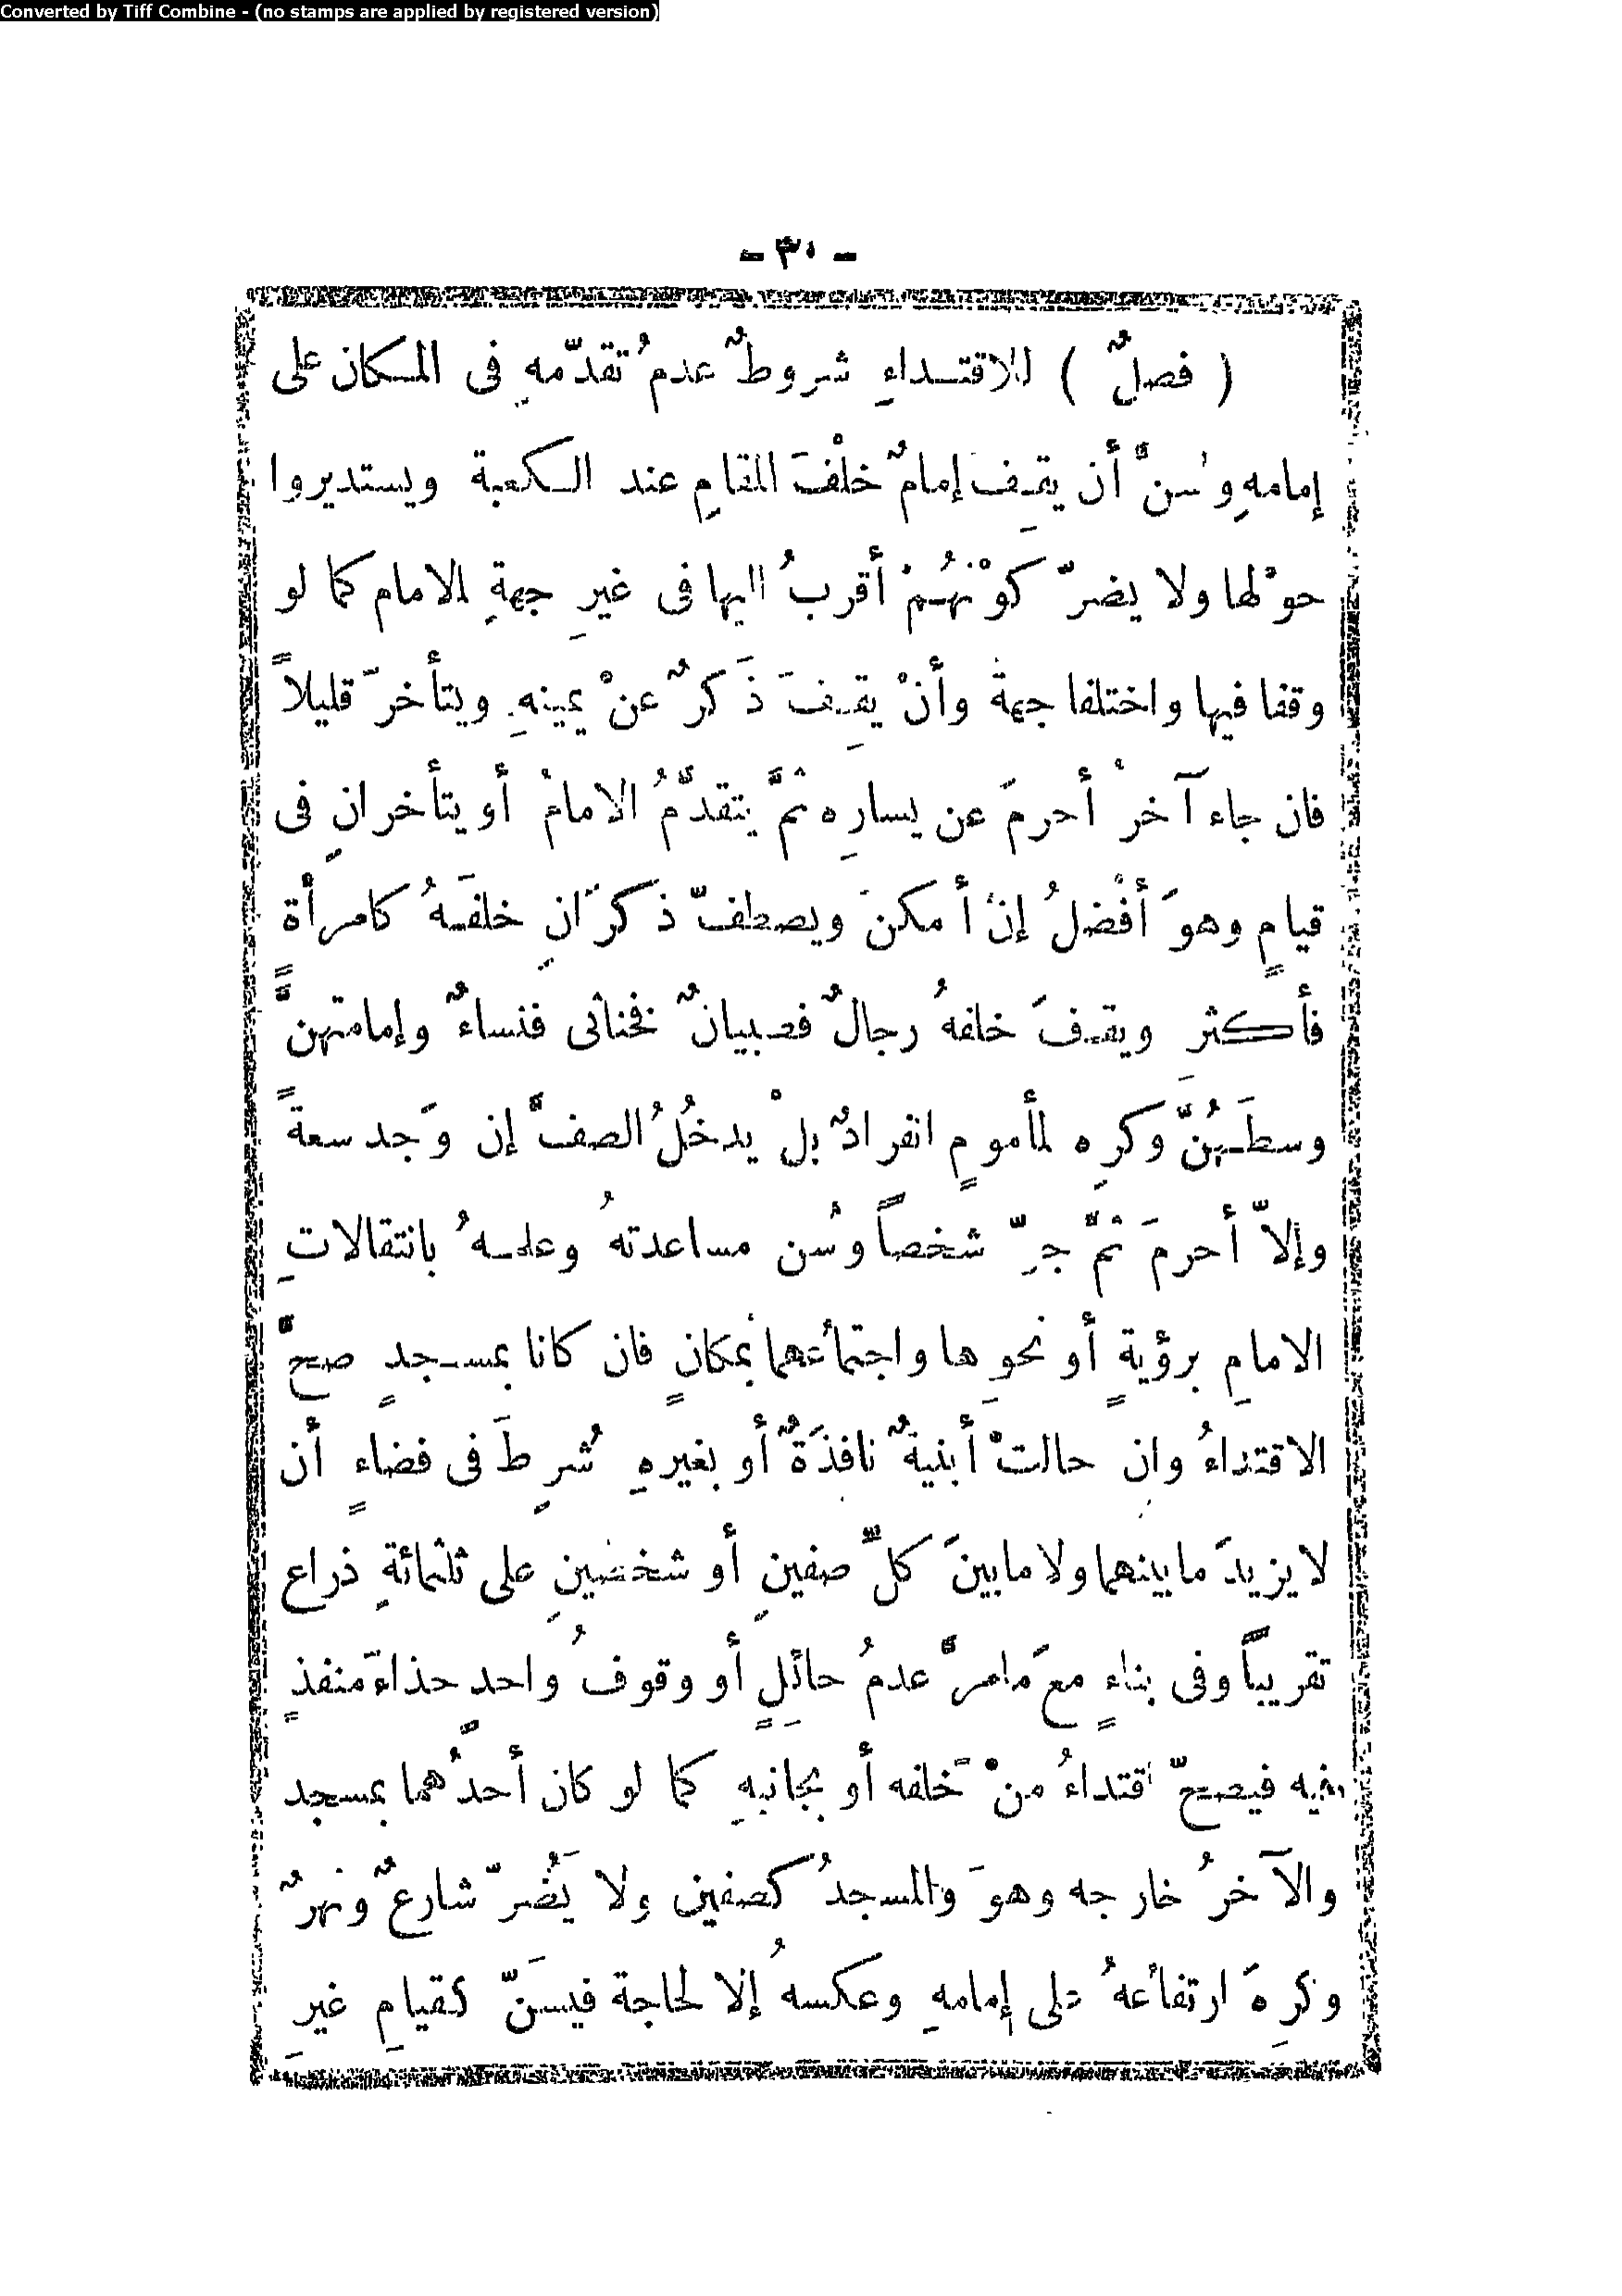 Converted by Tiff Combine - (no stamps are applied by registered version)
- ٣٠ -
( فصلٌ ) للاقتداءِ شروطٌ عدمُ تقدّمهِ فى المكان على
إمامهِ وسُنَّ أن يقِف إمامٌ خلْفَ المقامِ عند الكعبة ويستديروا
حوْلها ولا يضرّ كوْنُهُمْ أقربُ اليها فى غيرِ جهةِ الامام كما لو
وقفا فيها واختلفا جهة وأنْ يقِفَ ذَكرٌ عنْ يمينهِ ويتأخرَ قليلاً
فان جاء آخرُ أحرمَ عن يسارِه ثمَّ يتقدَّمُ الامامُ أو يتأخرانِ فى
قيامٍ وهوَ أفْضلُ إنْ أمكنَ ويصطفّ ذكرَانِ خلفَهُ كامرأة
فأكثر ويقِفَ خلفهُ رجالٌ فصبيانٌ فخناثى فنساءٌ وإمامتهنَّ
وسطَهُنّ وكرِه لمأمومٍ انفرادٌ بلْ يدخُلُ الصفَّ إن وَجد سعةً
وإلاّ أحرمَ ثُمَّ جرّ شخصاً وسُن مساعدتهُ وعلمهُ بانتقالاتِ
الامامِ برؤيةٍ أو نحوِها واجتماعُهما بمكانٍ فان كانا بمسجدٍ صحَّ
الاقتداءُ وان حالتْ أبنيةٌ نافذَةٌ أو بغيرهِ شُرِطَ فى فضاءٍ أن
لايزيدَ مابينهما ولا مابينَ كلِّ صفينِ أو شخصينِ على ثلثمائةِ ذراع
تقريباً وفى بناءٍ معَ مامرَّ عدمُ حائِلٍ أو وقوفُ واحدٍ حذاءَ منفذٍ
فيه فيصحّ اقتداءُ منْ خَلفه أو بجانبهِ كما لو كان أحدُهما بمسجد
والآخرُ خارجه وهوَ والمسجدُ كصفين ولا يَضُرّ شارعٌ ونهرٌ
وكرِهَ ارتفاعُهُ على إمامهِ وعكسهُ إلا لحاجة فيسَنّ كقيامِ غيرِ